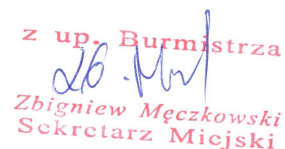 z up. Burmistrza
Zbigniew Męczkowski
Sekretarz Miejski